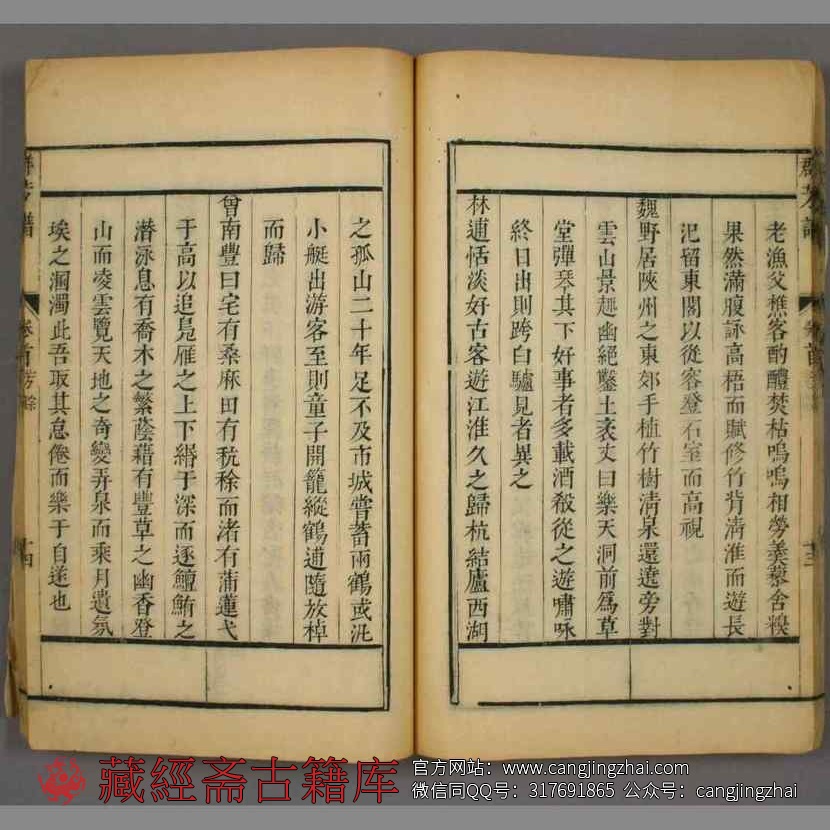 老漁父樵客酌醴焚枯嗚嗚相勞羹藜含糗
果然滿腹詠高梧而賦修竹背淸淮而遊長
汜留東閣以從客登石室而高視
魏野居陝州之東郊手植竹樹淸泉還遶旁對
雲山景趣幽絕鑿土袤丈曰樂天洞前爲草
堂彈琴其下好事者多載酒殽從之遊嘯咏
終日出則跨白驢見者異之
林逋恬淡好古客遊江淮久之歸杭結廬西湖
之孤山二十年足不及市城嘗蓄兩鶴或泛
小艇出游客至則童子開籠縱鶴逋隨放棹
而歸
曾南豐曰宅有桑麻田有秔稌而渚有蒲蓮弋
于高以追鳧雁之上下緡于深而逐鱣鮪之
潛泳息有喬木之繁蔭藉有豐草之幽香登
山而凌雲覽天地之奇變弄泉而乘月遺氛
埃之溷濁此吾取其怠倦而樂于自遂也
群芳譜
卷首
十四
藏經斋古籍库
官方网站：www.cangjingzhai.com
微信同QQ号：317691865 公众号：cangjingzhai